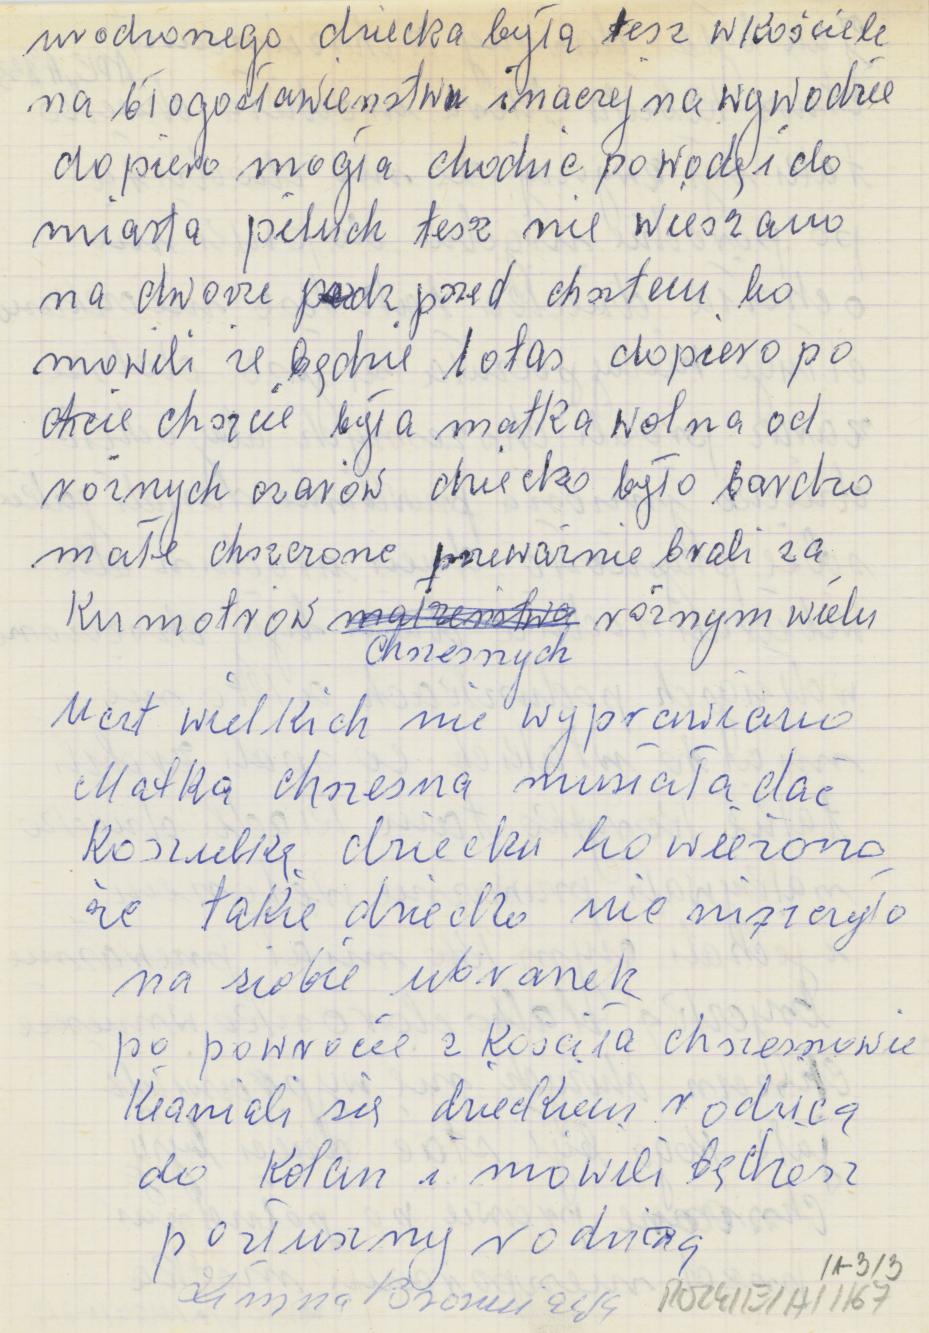 urodzonego dziecka była tesz wkościele
na błogosławieństwu inaczej na wywodzie
dopiero mogła chodzić powodę i do
miasta pieluch tesz nie wieszano
na dworze przed chsztem bo
mowili ze będzie lotas dopiero po
chscie była matka wolna od
różnych czarów dziecko było bardzo
małe chszczone przeważnie brali za
Kumotrów małżenstwa różnym wieku
chszesnych
Uczt wielkich nie wyprawiano
Matka chszesna musiała dac
Koszulkę dziecku bo wieżono
że takie dziecko nie niszczyło
na siobie ubranek
po powrocie z Kościła chszesnowie
kłaniali się dzieckiem rodzicą
do kolan i mowili będziesz
posłuszny rodzicą
1A-313